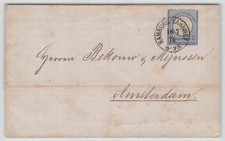 HAMBURG
Herren Bekouw & Mijnssen
Amsterdam.